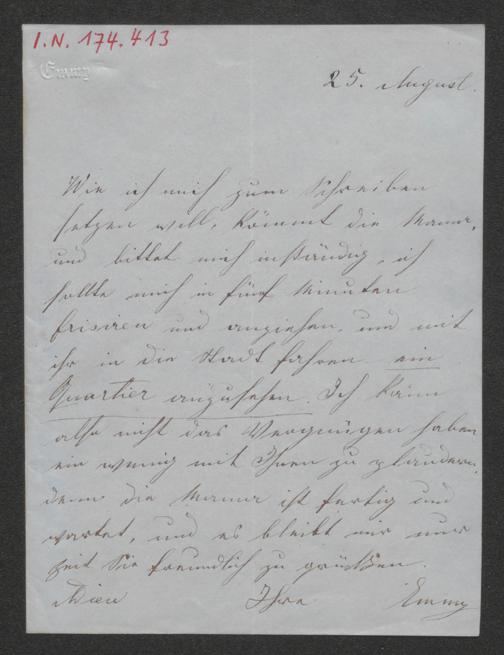 I.N. 174.413
Emmy
25. August.
Wie ich mich zum Schreiben
setzen will, kömmt die Mama,
und bittet mich inständig, ich
sollte mich in fünf Minuten
frisiren und anziehen, und mit
ihr in die Stadt fahren ein
Quartier anzusehen. Ich kann
also nicht das Vergnügen haben
ein wenig mit Ihnen zu plaudern,
denn die Mama ist fertig und
wartet, und es bleibt mir nur
Zeit Sie freundlich zu grüßen.
Adieu Ihre Emmy